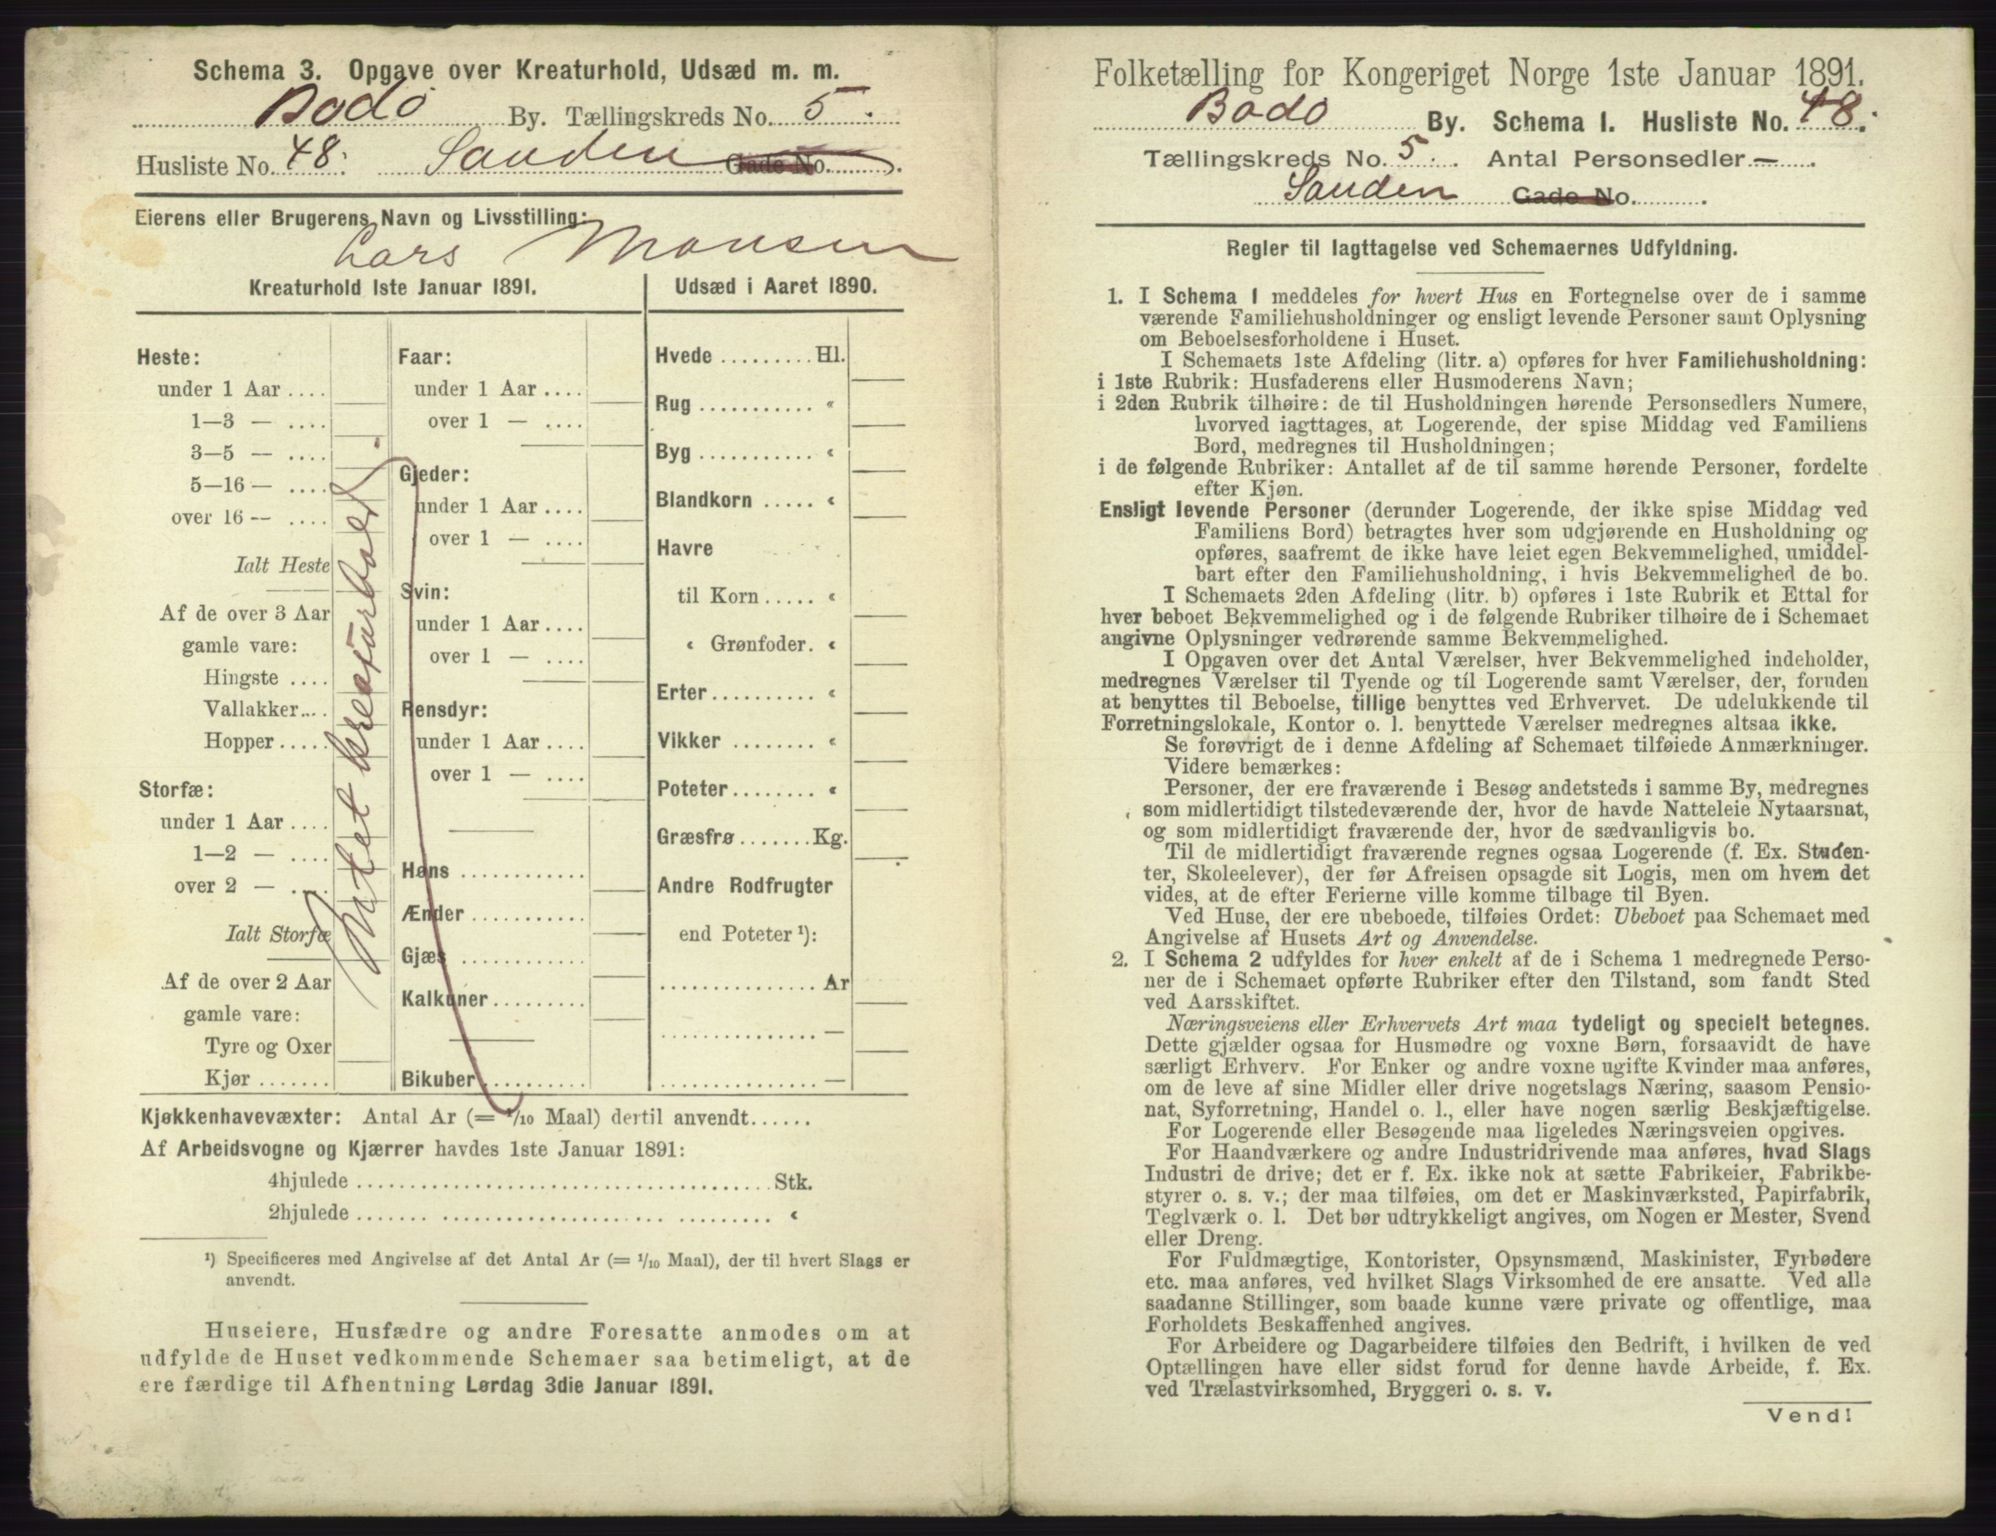 Schema 3. Opgave over Kreaturhold, Udsæd m. m.
Bodö By. Tællingskreds No. 5.
Husliste No. 48. Sanden Gade No.
Eierens eller Brugerens Navn og Livsstilling:
Lars Monsen
Kreaturhold 1ste Januar 1891.
Heste:
under 1 Aar....
1—3 — ....
3—5 — ....
5—16 — ....
over 16 — ....
Ialt Heste
Af de over 3 Aar
gamle vare:
Hingste ....
Vallakker....
Hopper.....
Storfæ:
under 1 Aar....
1—2 — ....
over 2 — ....
Ialt Storfæ
Af de over 2 Aar
gamle vare:
Tyre og Oxer
Kjør.......
Intet kreaturhold.
Faar:
under 1 Aar....
over 1 — ....
Gjeder:
under 1 Aar....
over 1 — ....
Svin:
under 1 Aar....
over 1 — ....
Rensdyr:
under 1 Aar....
over 1 — ....
Høns ............
Ænder...........
Gjæs ............
Kalkuner.........
Bikuber..........
Udsæd i Aaret 1890.
Hvede .........Hl.
Rug ........... «
Byg ........... «
Blandkorn ..... «
Havre
til Korn..... «
« Grønfoder. «
Erter.......... «
Vikker ........ «
Poteter........ «
Græsfrø.......Kg.
Andre Rodfrugter
end Poteter ¹):
...............Ar
............... —
............... —
Kjøkkenhavevæxter: Antal Ar (= 1/10 Maal) dertil anvendt......
Af Arbeidsvogne og Kjærrer havdes 1ste Januar 1891:
4hjulede .......................................Stk.
2hjulede ....... ................... ......... «
¹) Specificeres med Angivelse af det Antal Ar (= 1/10 Maal), der til hvert Slags er
anvendt.
Huseiere, Husfædre og andre Foresatte anmodes om at
udfylde de Huset vedkommende Schemaer saa betimeligt, at de
ere færdige til Afhentning Lørdag 3die Januar 1891.
Folketælling for Kongeriget Norge 1ste Januar 1891.
Bodö By. Schema 1. Husliste No. 48.
Tællingskreds No. 5. Antal Personsedler — .
Sanden Gade No. .
Regler til Iagttagelse ved Schemaernes Udfyldning.
1. I Schema 1 meddeles for hvert Hus en Fortegnelse over de i samme
værende Familiehusholdninger og ensligt levende Personer samt Oplysning
om Beboelsesforholdene i Huset.
I Schemaets 1ste Afdeling (litr. a) opføres for hver Familiehusholdning:
i 1ste Rubrik: Husfaderens eller Husmoderens Navn;
i 2den Rubrik tilhøire: de til Husholdningen hørende Personsedlers Numere,
hvorved iagttages, at Logerende, der spise Middag ved Familiens
Bord, medregnes til Husholdningen;
i de følgende Rubriker: Antallet af de til samme hørende Personer, fordelte
efter Kjøn.
Ensligt levende Personer (derunder Logerende, der ikke spise Middag ved
Familiens Bord) betragtes hver som udgjørende en Husholdning og
opføres, saafremt de ikke have leiet egen Bekvemmelighed, umiddel-
bart efter den Familiehusholdning, i hvis Bekvemmelighed de bo.
I Schemaets 2den Afdeling (litr. b) opføres i 1ste Rubrik et Ettal for
hver beboet Bekvemmelighed og i de følgende Rubriker tilhøire de i Schemaet
angivne Oplysninger vedrørende samme Bekvemmelighed.
I Opgaven over det Antal Værelser, hver Bekvemmelighed indeholder,
medregnes Værelser til Tyende og til Logerende samt Værelser, der, foruden
at benyttes til Beboelse, tillige benyttes ved Erhvervet. De udelukkende til
Forretningslokale, Kontor o. l. benyttede Værelser medregnes altsaa ikke.
Se forøvrigt de i denne Afdeling af Schemaet tilføiede Anmærkninger.
Videre bemærkes:
Personer, der ere fraværende i Besøg andetsteds i samme By, medregnes
som midlertidigt tilstedeværende der, hvor de havde Natteleie Nytaarsnat,
og som midlertidigt fraværende der, hvor de sædvanligvis bo.
Til de midlertidigt fraværende regnes ogsaa Logerende (f. Ex. Studen-
ter, Skoleelever), der før Afreisen opsagde sit Logis, men om hvem det
vides, at de efter Ferierne ville komme tilbage til Byen.
Ved Huse, der ere ubeboede, tilføies Ordet: Ubeboet paa Schemaet med
Angivelse af Husets Art og Anvendelse.
2. I Schema 2 udfyldes for hver enkelt af de i Schema 1 medregnede Perso-
ner de i Schemaet opførte Rubriker efter den Tilstand, som fandt Sted
ved Aarsskiftet.
Næringsveiens eller Erhvervets Art maa tydeligt og specielt betegnes.
Dette gjælder ogsaa for Husmødre og voxne Børn, forsaavidt de have
særligt Erhverv. For Enker og andre voxne ugifte Kvinder maa anføres,
om de leve af sine Midler eller drive nogetslags Næring, saasom Pensio-
nat, Syforretning, Handel o. l., eller have nogen særlig Beskjæftigelse.
For Logerende eller Besøgende maa ligeledes Næringsveien opgives.
For Haandværkere og andre Industridrivende maa anføres, hvad Slags
Industri de drive; det er f. Ex. ikke nok at sætte Fabrikeier, Fabrikbe-
styrer o. s. v.; der maa tilføies, om det er Maskinværksted, Papirfabrik,
Teglværk o. l. Det bør udtrykkeligt angives, om Nogen er Mester, Svend
eller Dreng.
For Fuldmægtige, Kontorister, Opsynsmænd, Maskinister, Fyrbødere
etc. maa anføres, ved hvilket Slags Virksomhed de ere ansatte. Ved alle
saadanne Stillinger, som baade kunne være private og offentlige, maa
Forholdets Beskaffenhed angives.
For Arbeidere og Dagarbeidere tilføies den Bedrift, i hvilken de ved
Optællingen have eller sidst forud for denne havde Arbeide, f. Ex.
ved Trælastvirksomhed, Bryggeri o. s. v.
Vend!